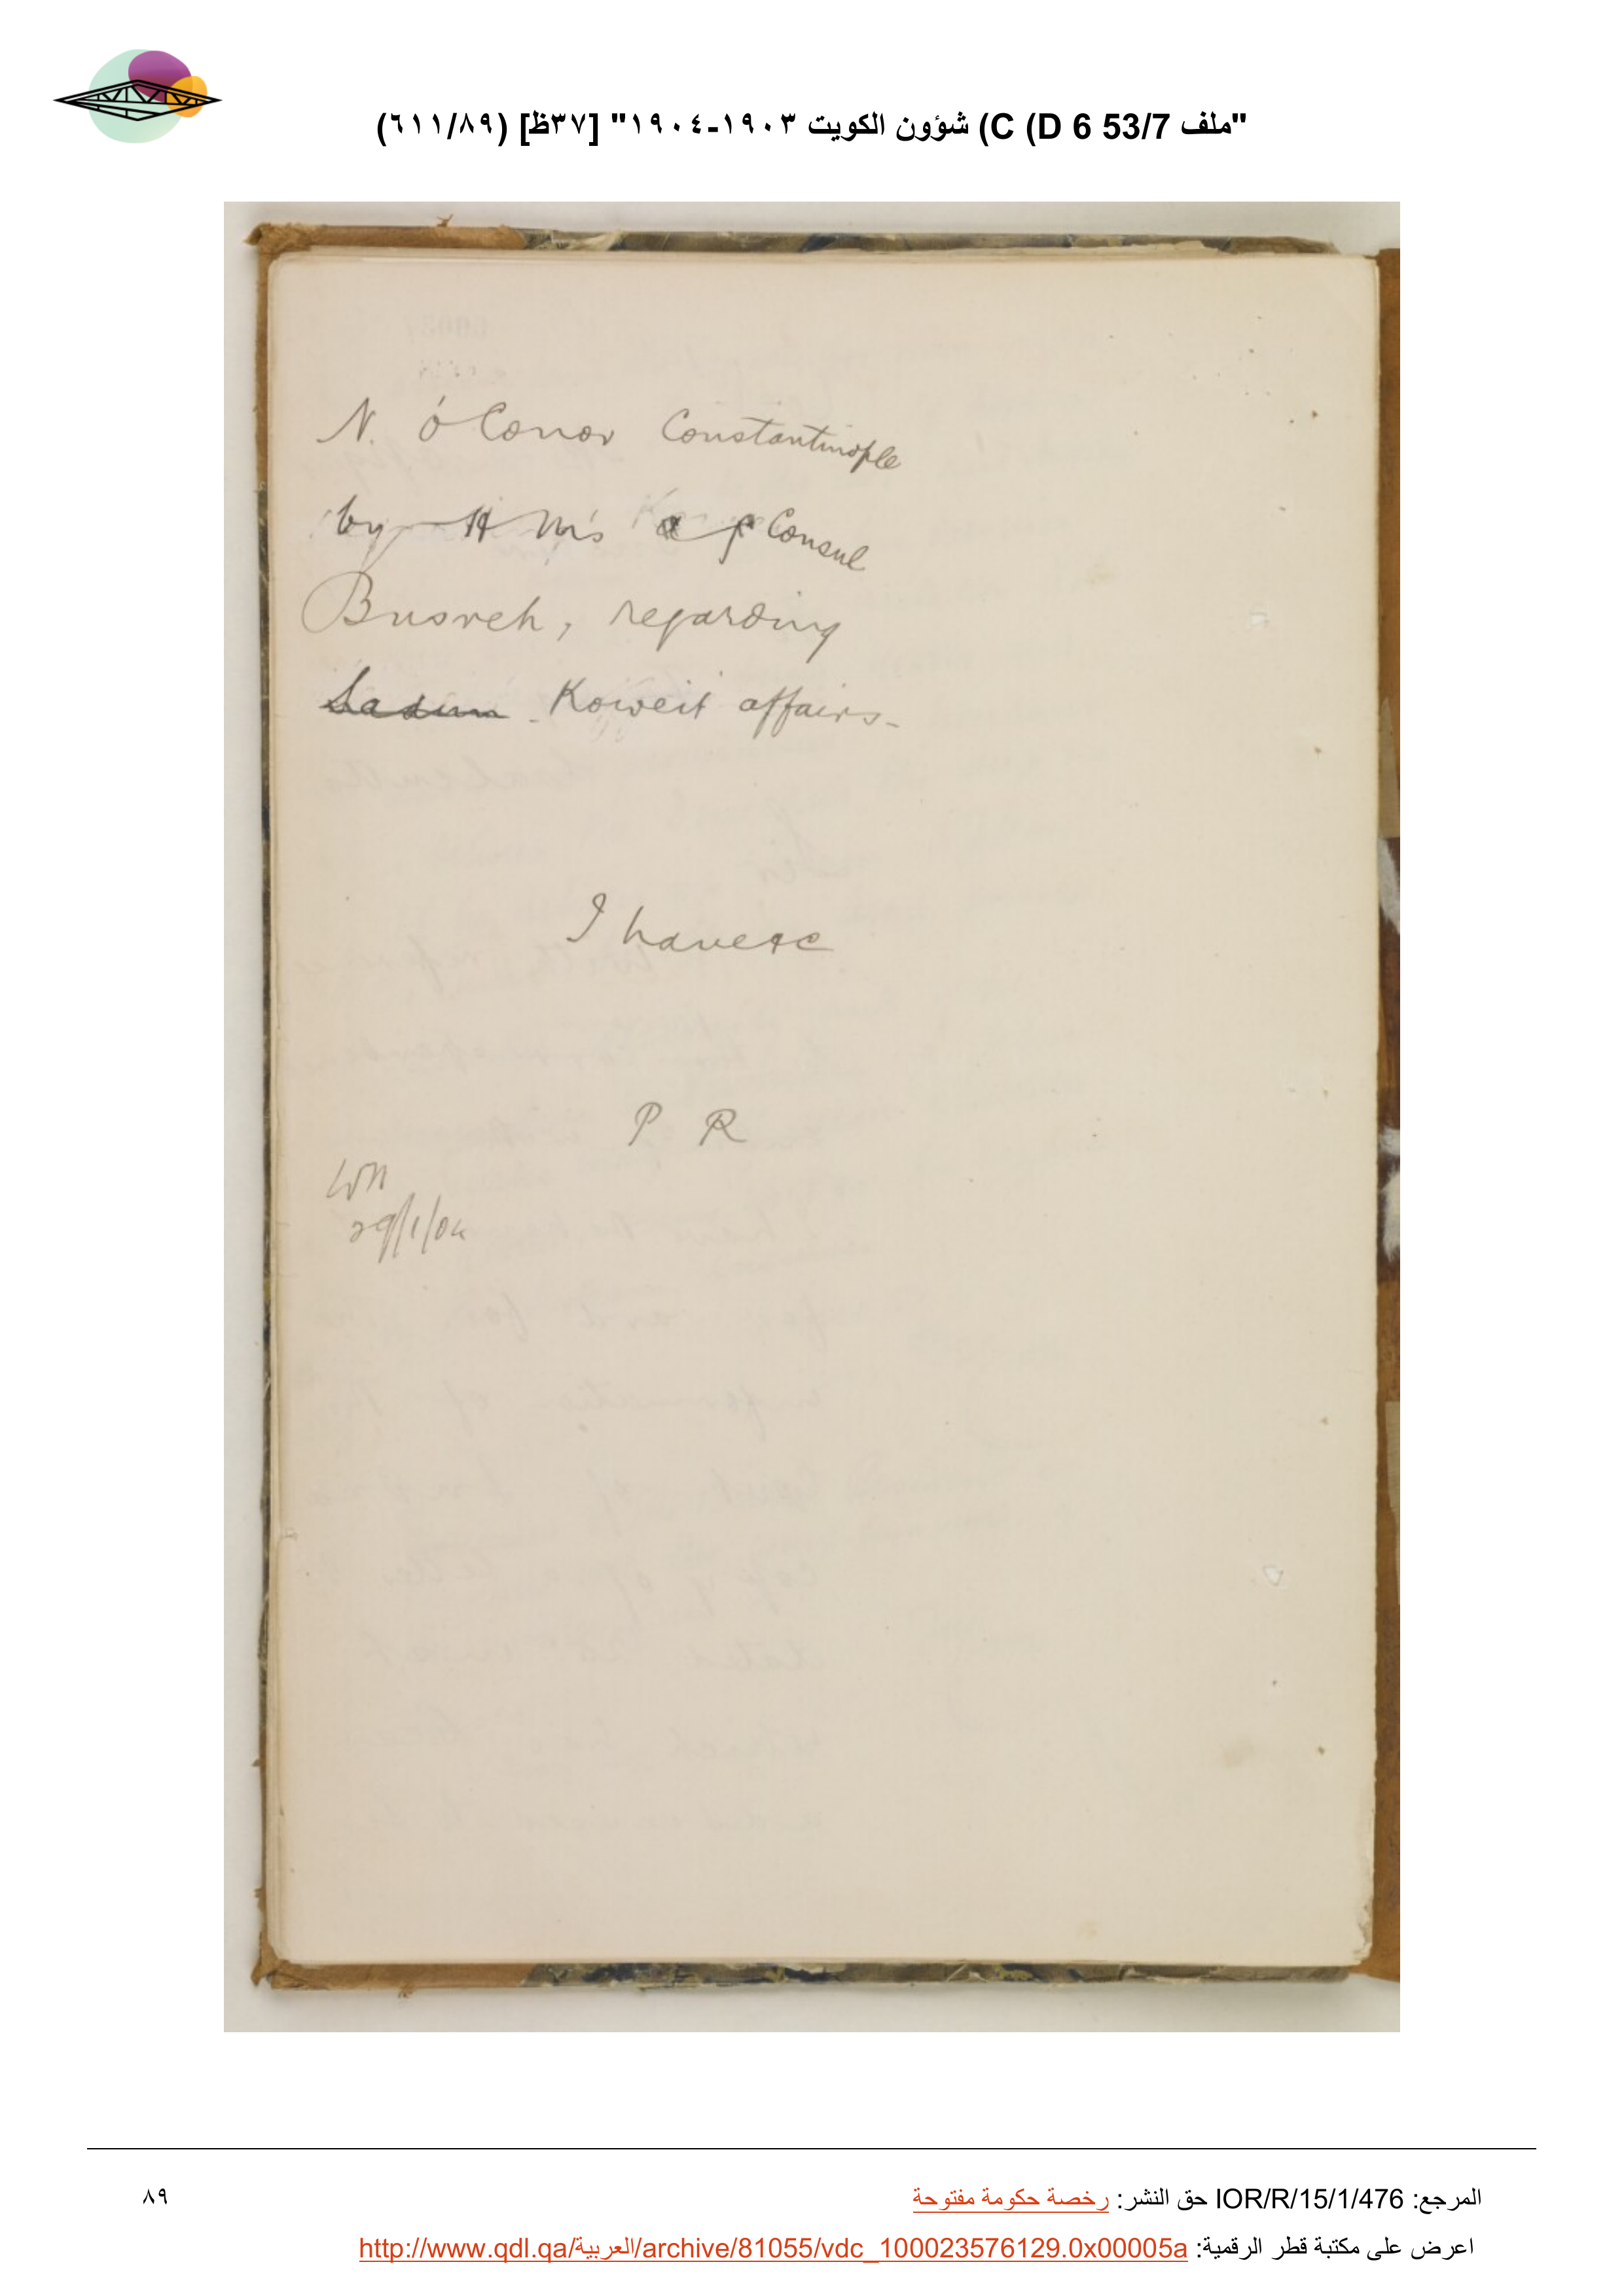 "ملف 53/7 C (D 6) شؤون الكويت ١٩٠٣-١٩٠٤" [٣٧ظ] (٦١١/٨٩)
N. O'Conor Constantinople
by H M's Consul
Busreh, regarding
Koweit affairs-
I have etc
P R
29/1/04
المرجع: IOR/R/15/1/476 حق النشر: رخصة حكومة مفتوحة
٨٩
اعرض على مكتبة قطر الرقمية: http://www.qdl.qa/العربية/archive/81055/vdc_100023576129.0x00005a